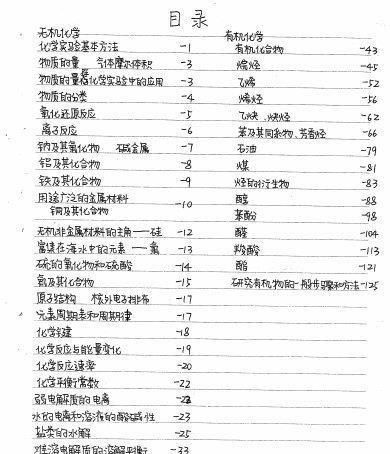 目录
无机化学
化学实验基本方法 -1
物质的量 气体摩尔体积 -3
物质的量在化学实验中的应用 -3
物质的分类 -4
氧化还原反应 -5
离子反应 -6
钠及其氧化物 碱金属 -7
铝及其化合物 -8
铁及其化合物 -9
用途广泛的金属材料
铜及其化合物 -10
无机非金属材料的主角——硅 -12
富集在海水中的元素——氯 -13
硫的氧化物和硫酸 -14
氮及其化合物 -15
原子结构 核外电子排布 -17
元素周期表和周期律 -17
化学键 -18
化学反应与能量变化 -19
化学反应速率 -20
化学平衡常数 -22
弱电解质的电离 -22
水的电离和溶液的酸碱性 -23
盐类的水解 -25
难溶电解质的溶解平衡 -33
有机化学
有机化合物 -43
烷烃 -45
乙烯 -52
烯烃 -56
乙炔、炔烃 -62
苯及其同系物、芳香烃 -66
石油 -79
煤 -81
烃的衍生物 -83
醇 -88
苯酚 -98
醛 -104
羧酸 -113
酯 -121
研究有机物的一般步骤和方法 -125